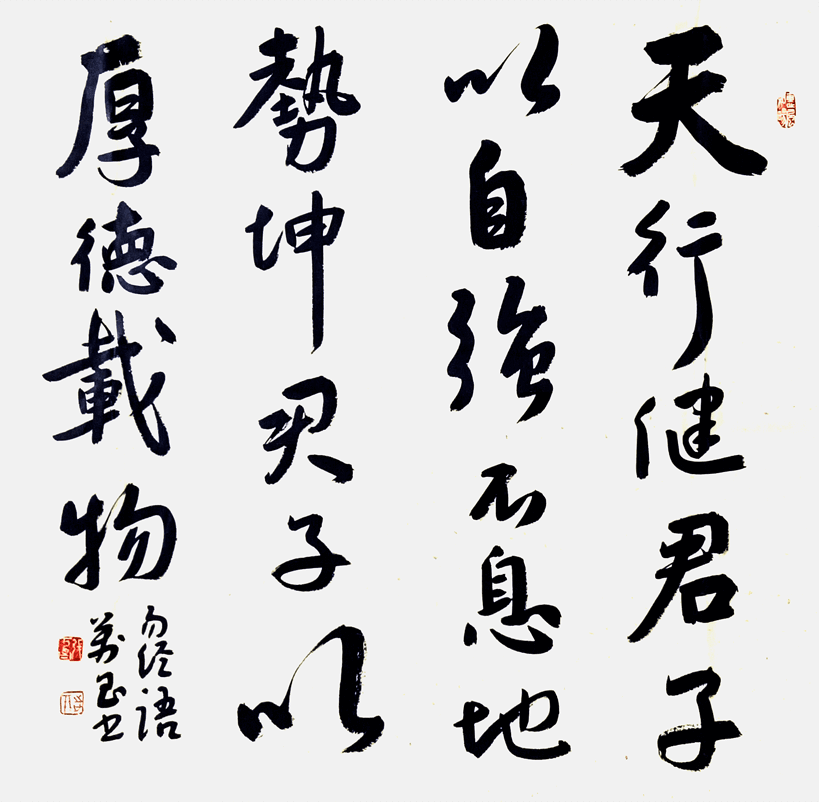 天行健君子
以自強不息地
勢坤君子以
厚德載物
易经語
萬玉书